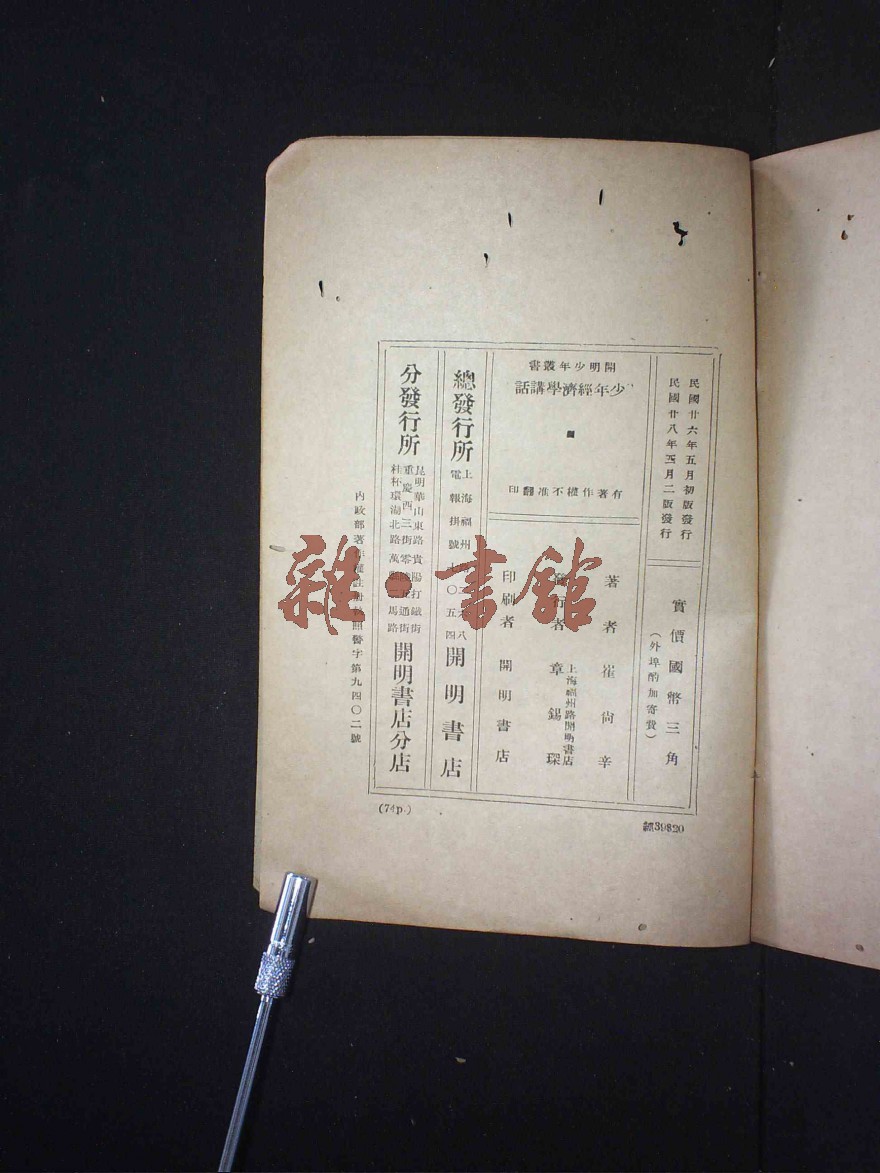 民國廿六年五月初版發行
民國廿八年四月二版發行
實價國幣三角
(外埠酌加寄費)
開明少年叢書
少年經濟學講話
有著作權不准翻印
著者 崔尚辛
發行者 章錫琛
上海福州路開明書店
印刷者 開明書店
總發行所
上海福州
電報掛號七〇五四
開明書店
分發行所
昆明華山東路 貴陽
重慶西三街 零陵
桂林環湖北路
開明書店分店
內政部著作權註冊執照警字第九四〇二號
(74p.)
39820
雜·書館